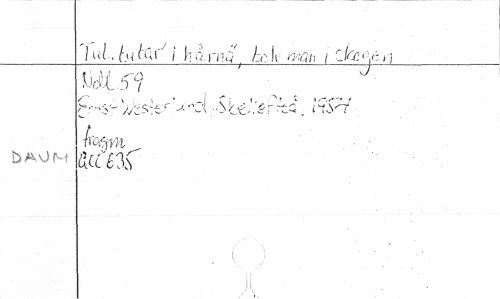 Tul. tutar i hårnä, tolv man i skogen
Noll 59
Ernst Westerlund, Skellefteå, 1954
fragm
DAUM acc 635